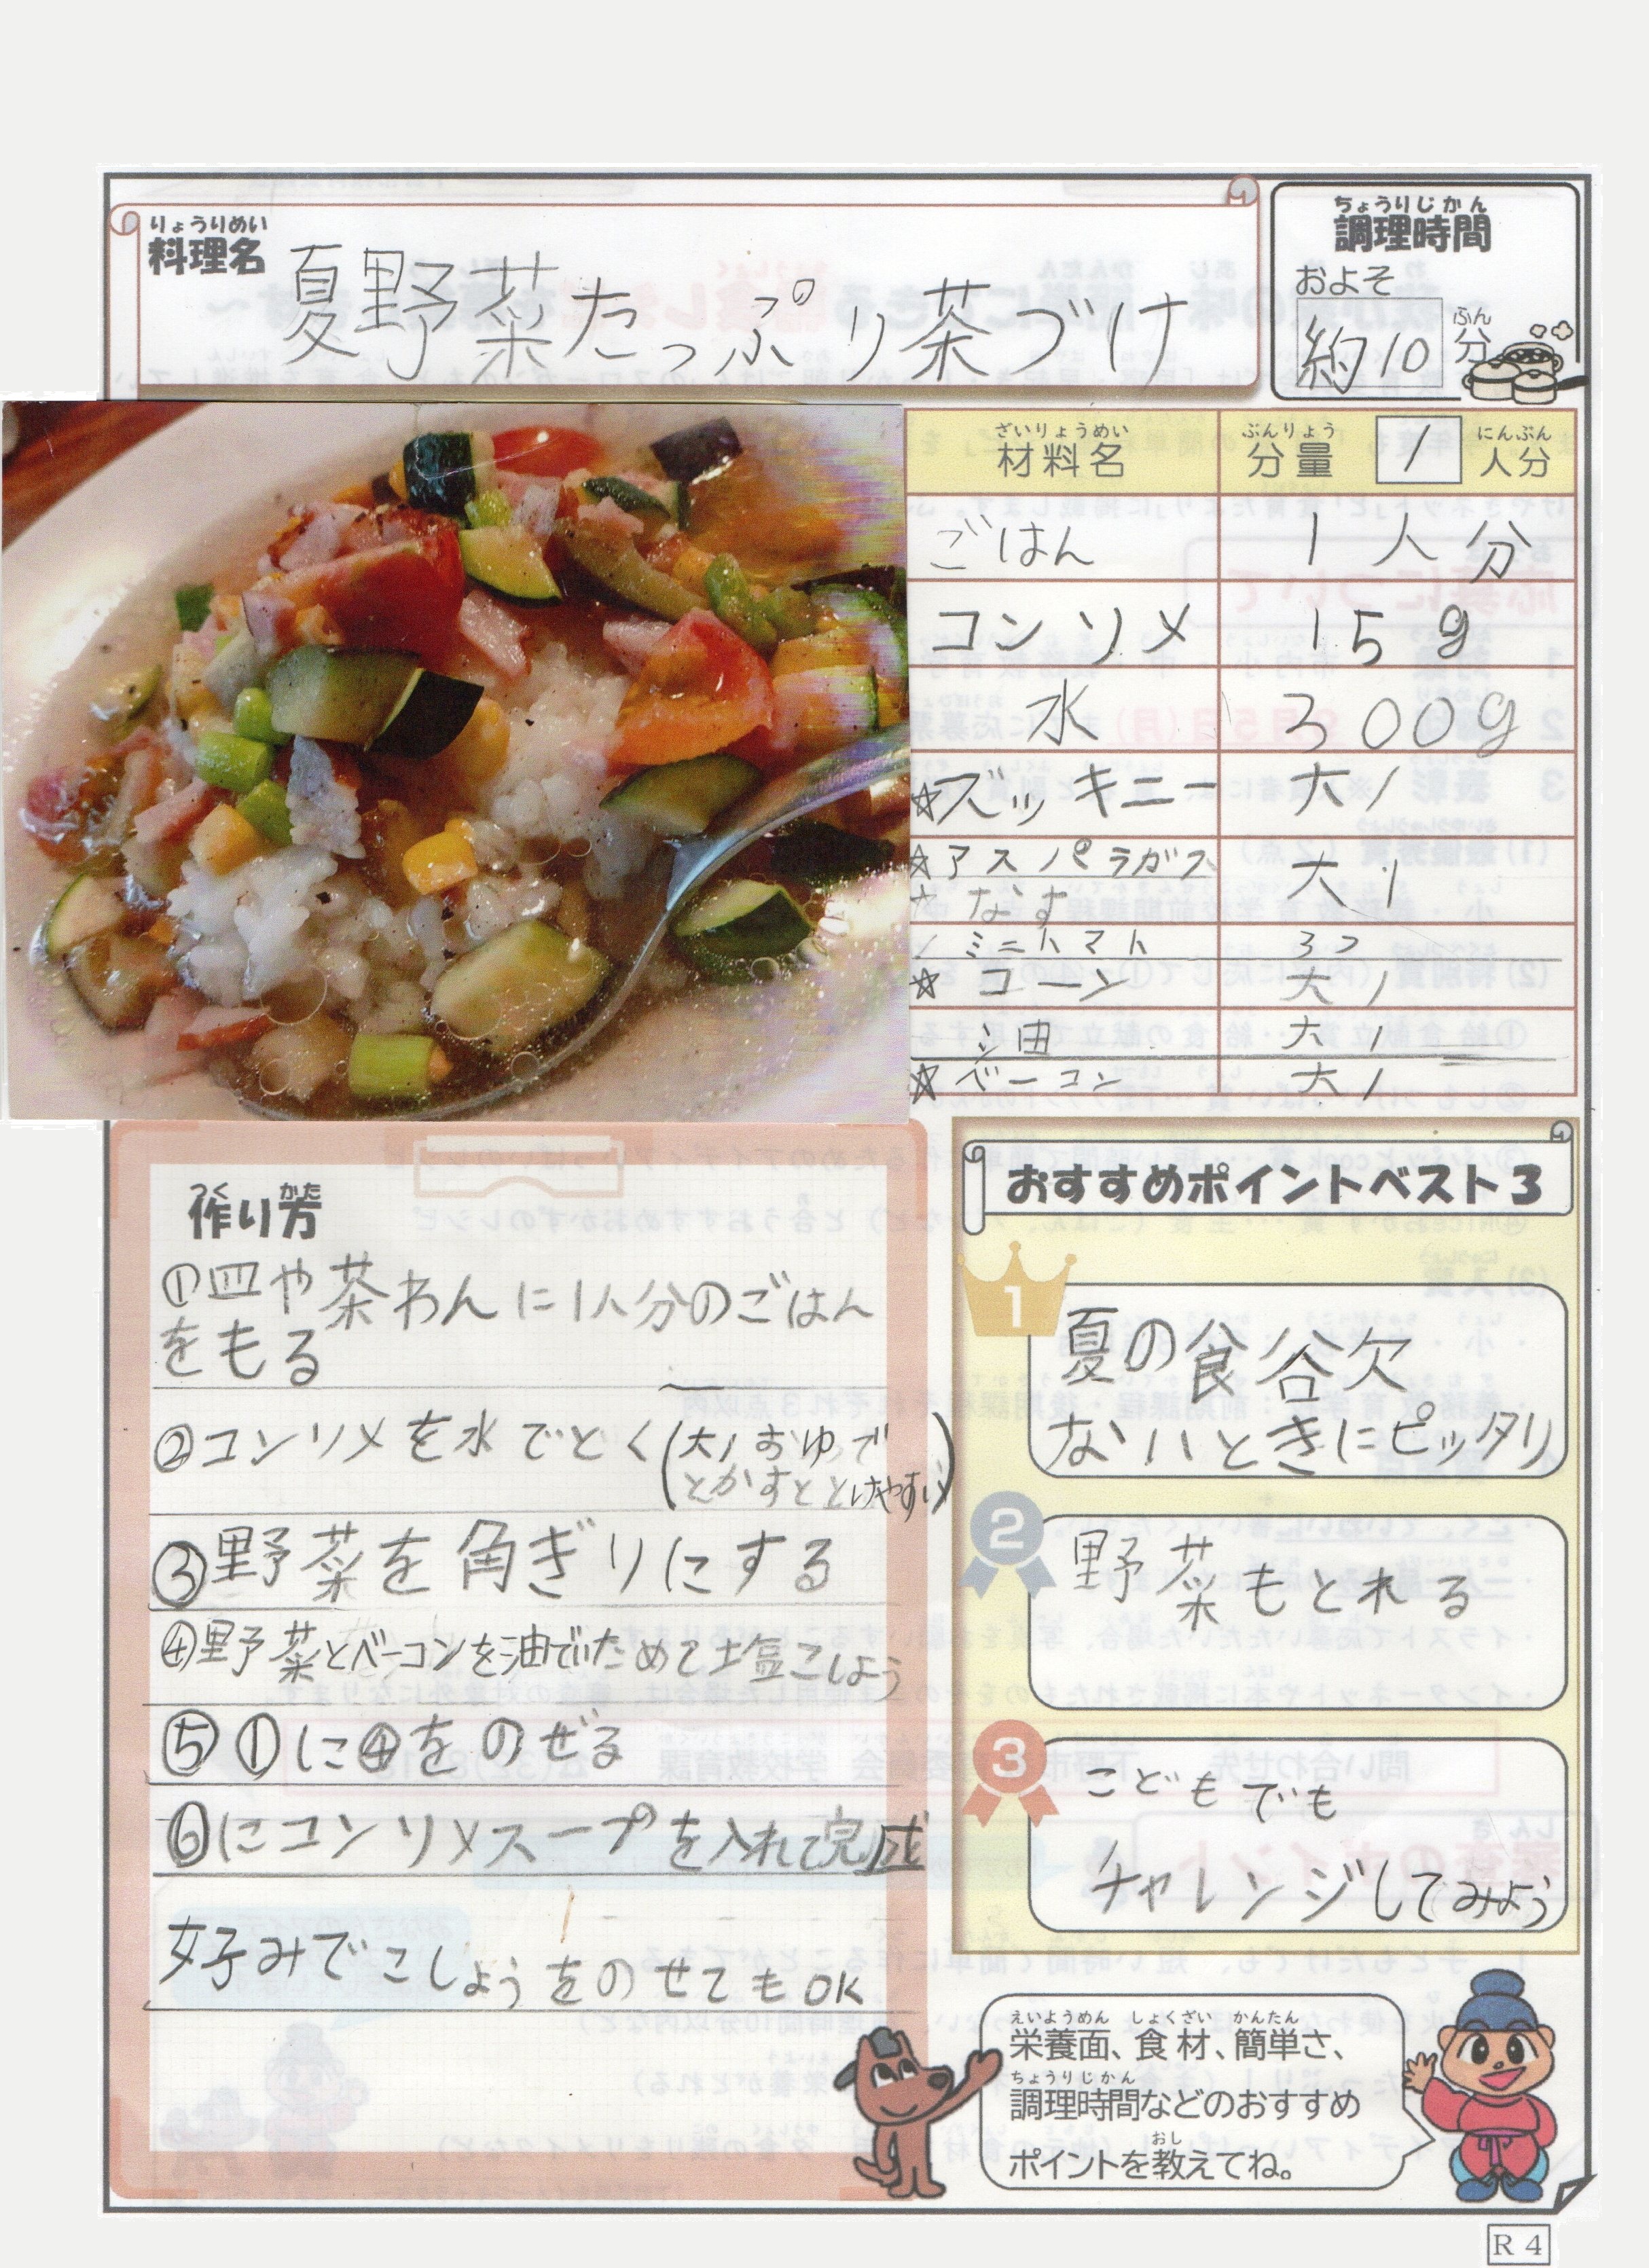 りょうりめい
料理名
夏野菜たっぷり茶づけ
ちょうりじかん
調理時間
およそ
約10
ふん
分
ざいりょうめい
材料名
ぶんりょう
分量
1
にんぶん
人分
ごはん 1人分
コンソメ 15g
水 300g
☆ズッキニー 大1
☆アスパラガス 大1
なす
ミニトマト 3つ
☆コーン 大1
油 大1
☆ベーコン 大1
つく かた
作り方
①皿や茶わんに1人分のごはん
をもる
②コンソメを水でとく(大1おゆで
とかすととけやすい)
③野菜を角ぎりにする
④野菜とベーコンを油でいためて塩こしょう
⑤①に④をのせる
⑥にコンソメスープを入れて完成
好みでこしょうをのせてもOK
おすすめポイントベスト3
1
夏の食谷欠
ないときにピッタリ
2
野菜もとれる
3
こどもでも
チャレンジしてみよう
えいようめん しょくざい かんたん
栄養面、食材、簡単さ、
ちょうりじかん
調理時間などのおすすめ
おし
ポイントを教えてね。
R4